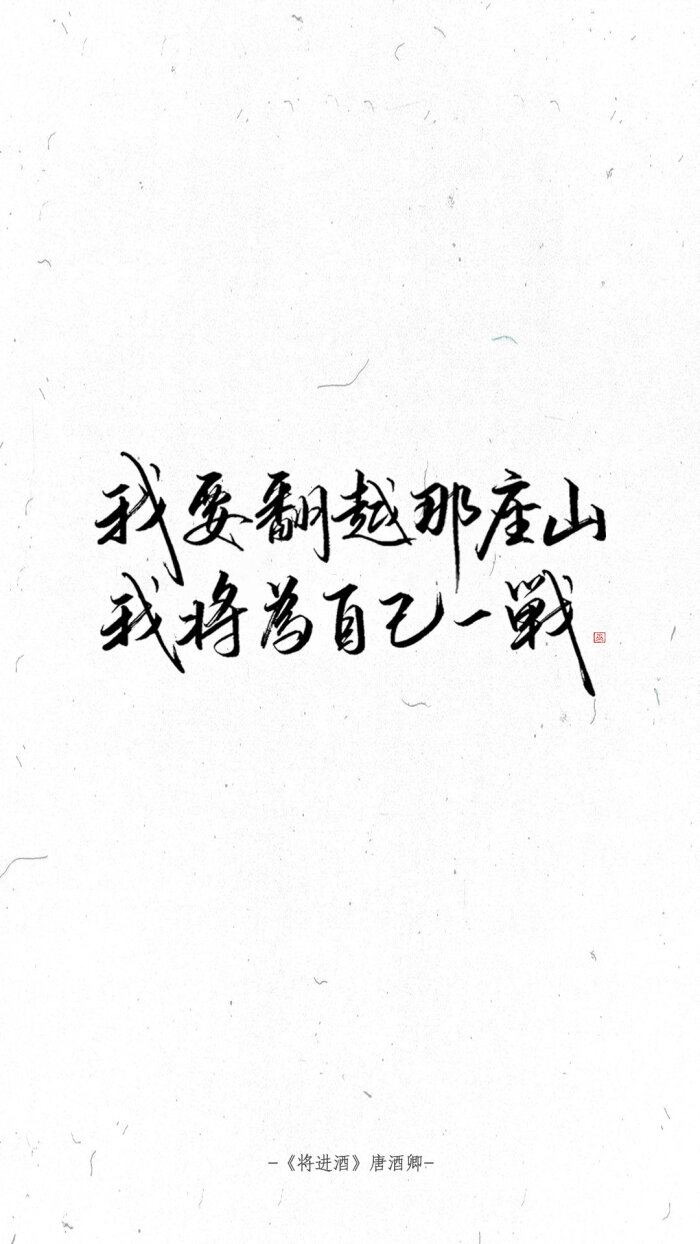 我要翻越那座山
我将為自己一戦
-《将进酒》唐酒卿-